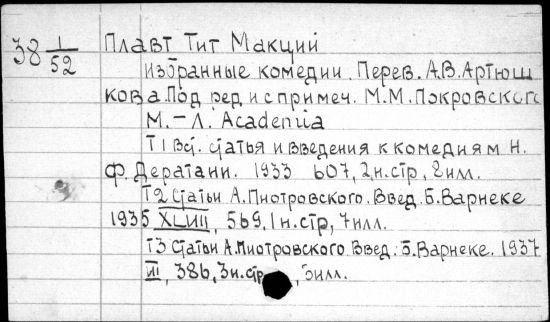 38 1/52
Плавт Тит Макций
Избранные комедии. Перев. А.В.Артюш
кова. Под ред. и с примеч. М.М.Покровского
М.-Л. Academia
Т1 Вст. статья и введения к комедиям Н.
Ф. Дератани. 1933 607, 2н.стр, 2илл.
Т2 Статьи А.Пиотровского. Введ. Б.Варнеке
1935 XLVIII, 569, 1н.стр, 7илл.
Т3 Статьи А.Пиотровского Введ. Б.Варнеке. 1937
III, 386, 3н.стр, 3илл.